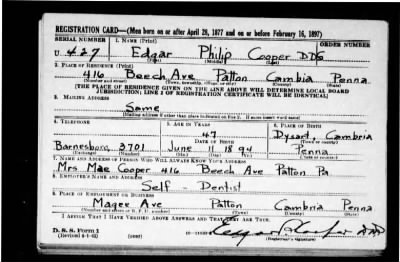 REGISTRATION CARD—(Men born on or after April 28, 1877 and on or before February 16, 1897)
SERIAL NUMBER 1. NAME (Print) ORDER NUMBER
U 427 Edgar Philip Cooper DDS
(First) (Middle) (Last)
2. PLACE OF RESIDENCE (Print)
416 Beech Ave Patton Cambia Penna
(Number and street) (Town, township, village, or city) (County) (State)
[THE PLACE OF RESIDENCE GIVEN ON THE LINE ABOVE WILL DETERMINE LOCAL BOARD
JURISDICTION; LINE 2 OF REGISTRATION CERTIFICATE WILL BE IDENTICAL]
3. MAILING ADDRESS
Same
[Mailing address if other than place indicated on line 2. If same insert word same]
4. TELEPHONE 5. AGE IN YEARS 6. PLACE OF BIRTH
47 Dysart, Cambria
DATE OF BIRTH (Town or county)
Barnesboro, 3701 June 11 1894 Penna
(Exchange) (Number) (Mo.) (Day) (Yr.) (State or country)
7. NAME AND ADDRESS OF PERSON WHO WILL ALWAYS KNOW YOUR ADDRESS
Mrs Mae Cooper 416 Beech Ave Patton Pa
8. EMPLOYER'S NAME AND ADDRESS
Self - Dentist
9. PLACE OF EMPLOYMENT OR BUSINESS
Magee Ave Patton Cambria Penna
(Number and street or R. F. D. number) (Town) (County) (State)
I AFFIRM THAT I HAVE VERIFIED ABOVE ANSWERS AND THAT THEY ARE TRUE.
D. S. S. Form 1
(Revised 4-1-42) (over)
(Registrant's signature)